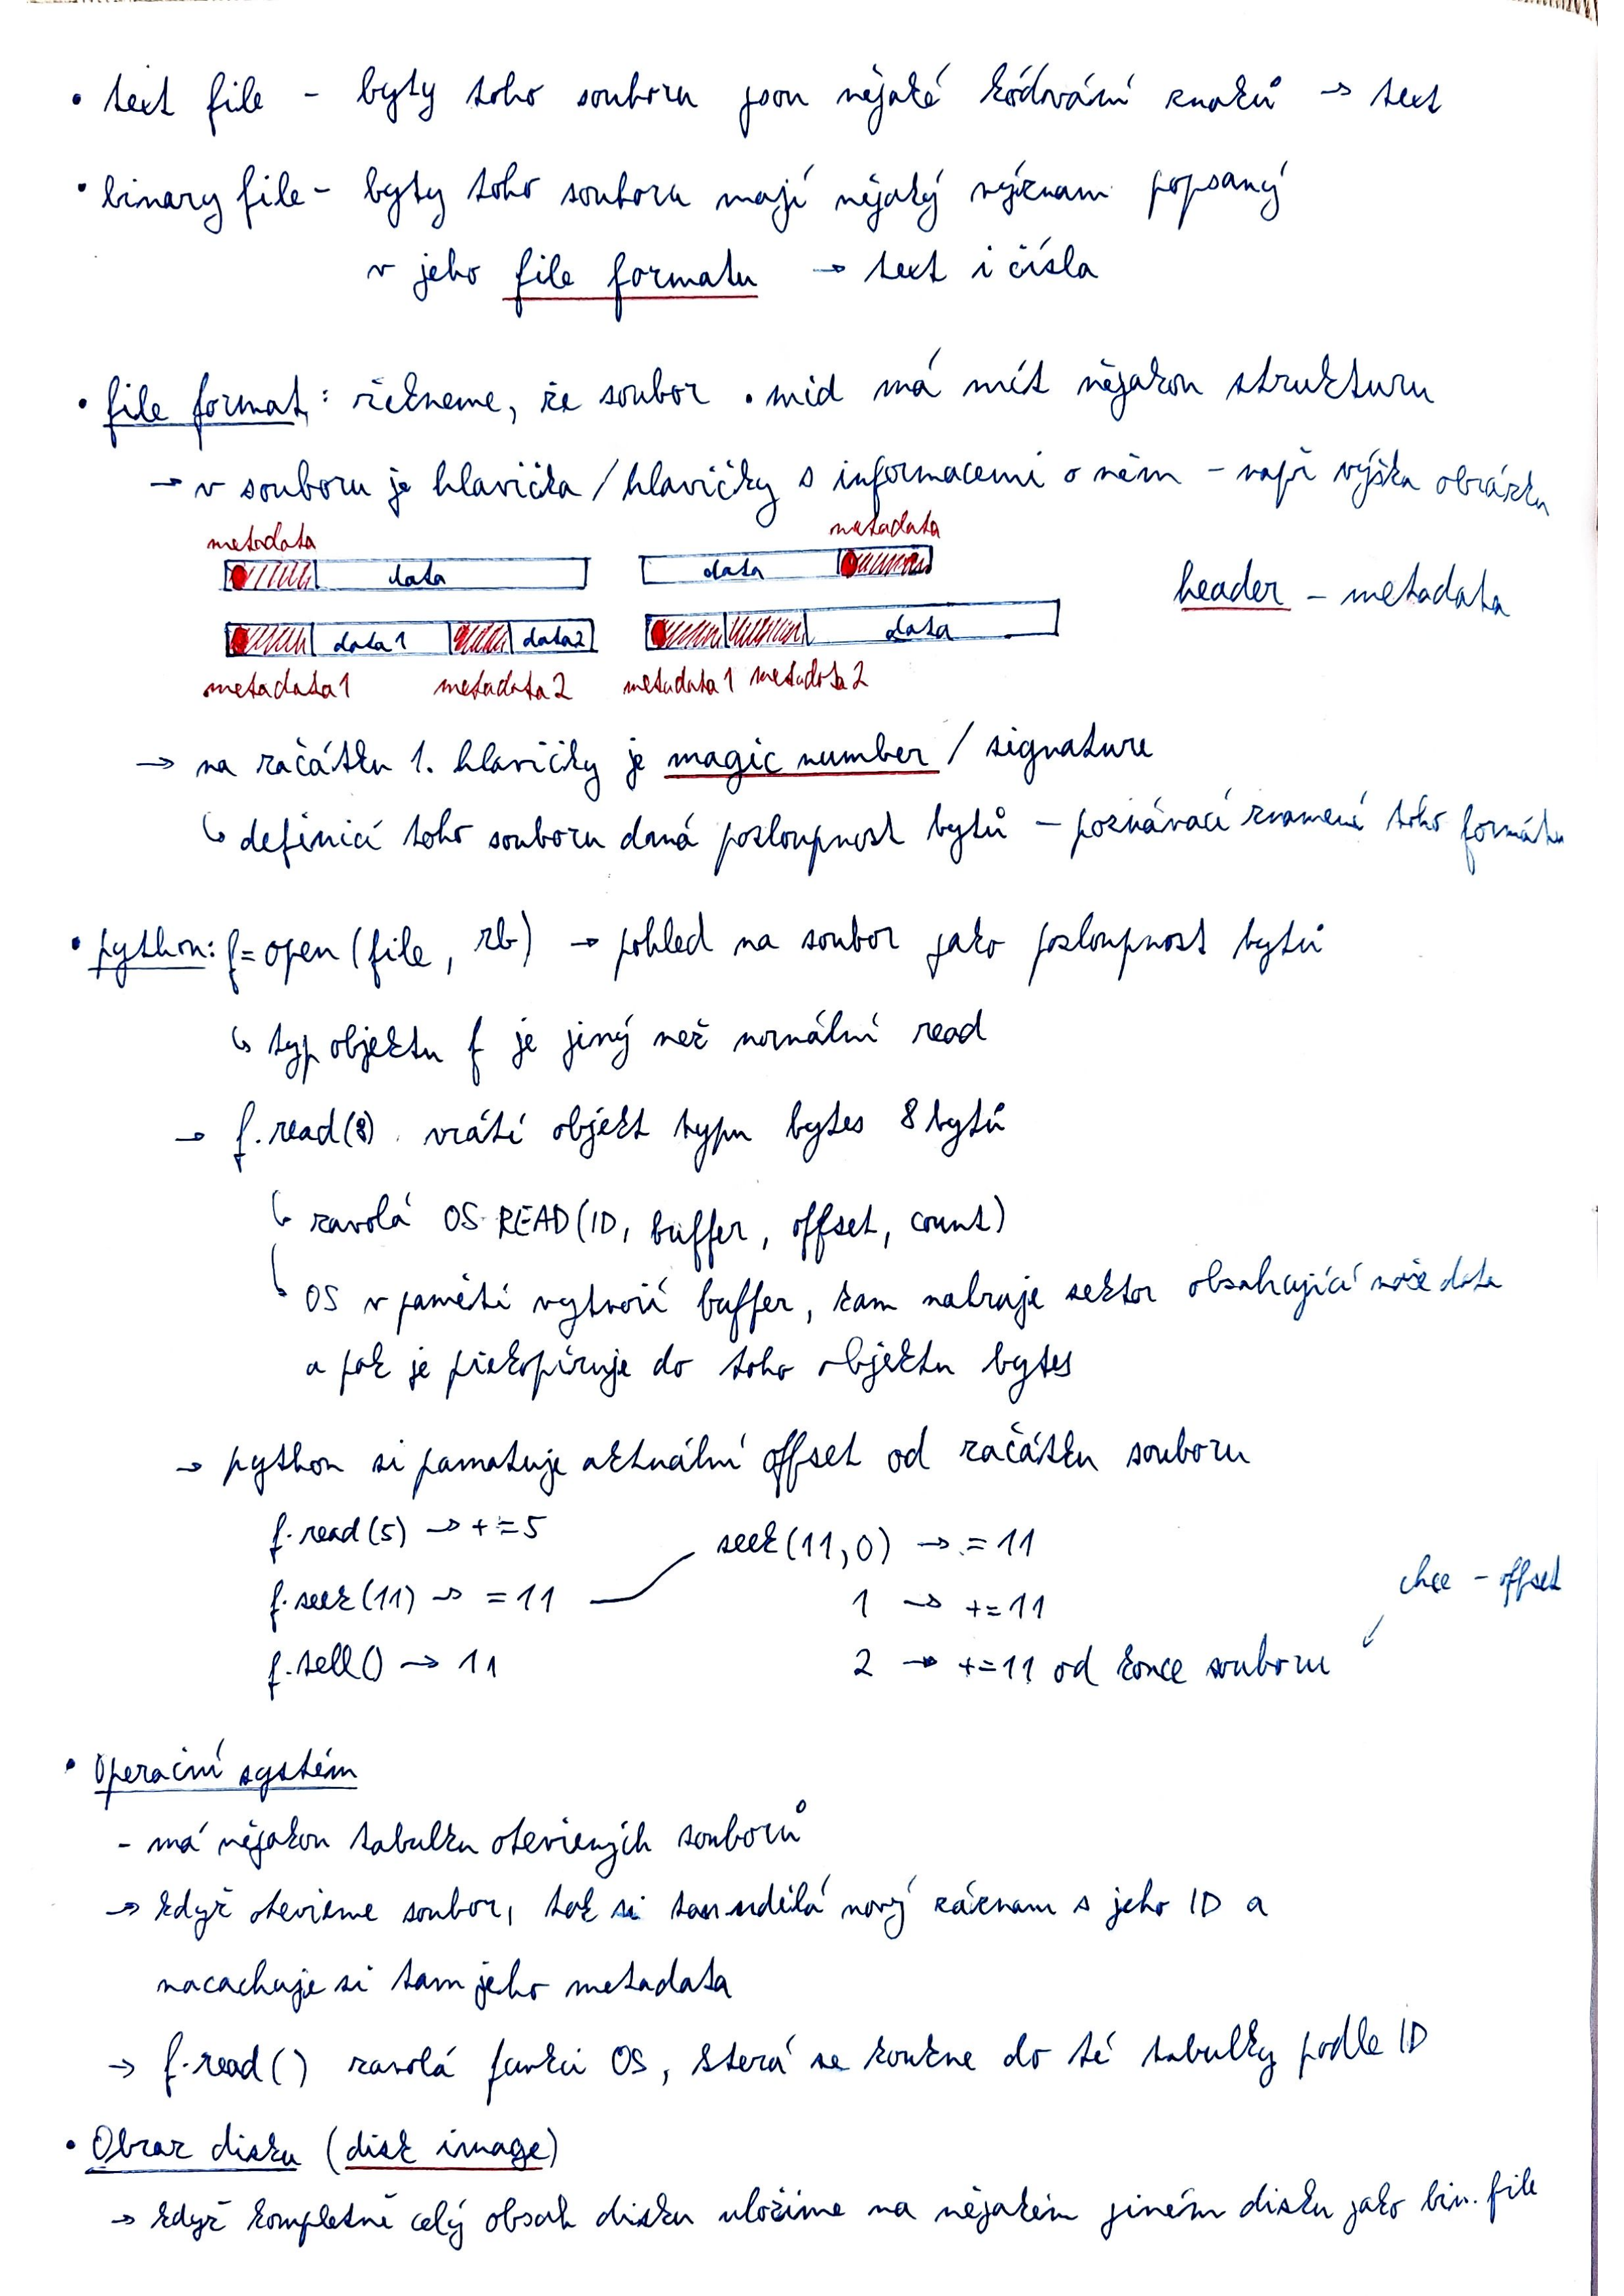 • text file - byty toho souboru jsou nějaké kódování znaků → text
• binary file - byty toho souboru mají nějaký význam popsaný
v jeho file formatu → text i čísla
• file format: řekneme, že soubor .mid má mít nějakou strukturu
→ v souboru je hlavička/hlavičky s informacemi o něm - např výška obrázku
metadata metadata
data data
header - metadata
data1 data2 data
metadata1 metadata2 metadata1 metadata2
→ na začátku 1. hlavičky je magic number / signature
↳ definicí toho souboru daná posloupnost bytů - poznávací znamení toho formátu
• python: f=open(file, rb) → pohled na soubor jako posloupnost bytů
↳ typ objektu f je jiný než normální read
→ f.read(8) vrátí objekt typu bytes 8 bytů
↳ zavolá OS READ(ID, buffer, offset, count)
↳ OS v paměti vytvoří buffer, kam nabruje sektor obsahující naše data
a pak je překopíruje do toho objektu bytes
→ python si pamatuje aktuální offset od začátku souboru
f.read(5) → +=5
seek(11,0) → =11
f.seek(11) → =11
1 → +=11
chce - offset
f.tell() → 11
2 → +=11 od konce souboru
• Operační systém
- má nějakou tabulku otevřených souborů
→ když otevřeme soubor, tak si tam udělá nový záznam s jeho ID a
nacachuje si tam jeho metadata
→ f.read() zavolá funkci OS, která se koukne do té tabulky podle ID
• Obraz disku (disk image)
→ když kompletně celý obsah disku uložíme na nějakém jiném disku jako bin. file